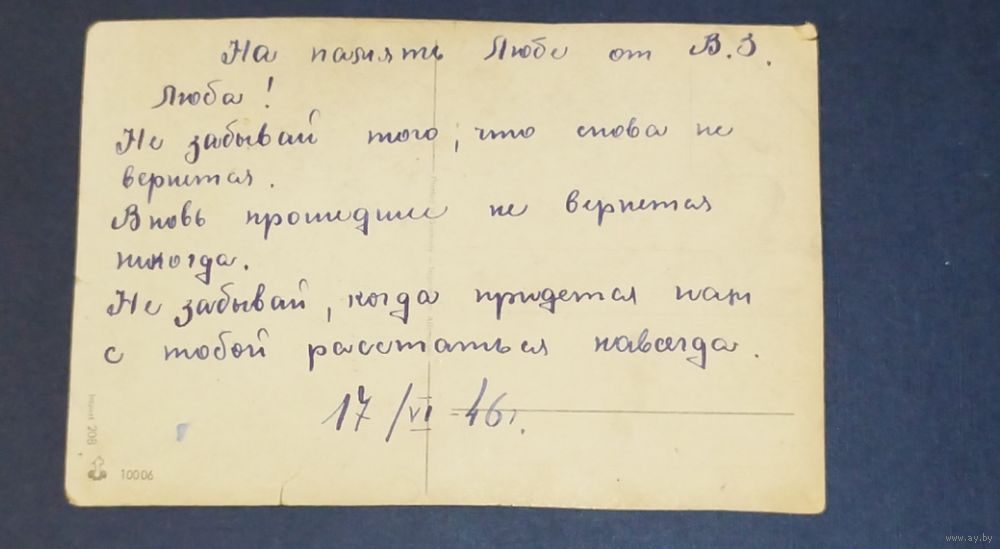 На память Любе от В.З.
Люба!
Не забывай того, что снова не
вернется.
Вновь прошедшее не вернется
никогда.
Не забывай, когда придется нам
с тобой расстаться навсегда.
17/VI-46г.
208
10006
www.ay.by